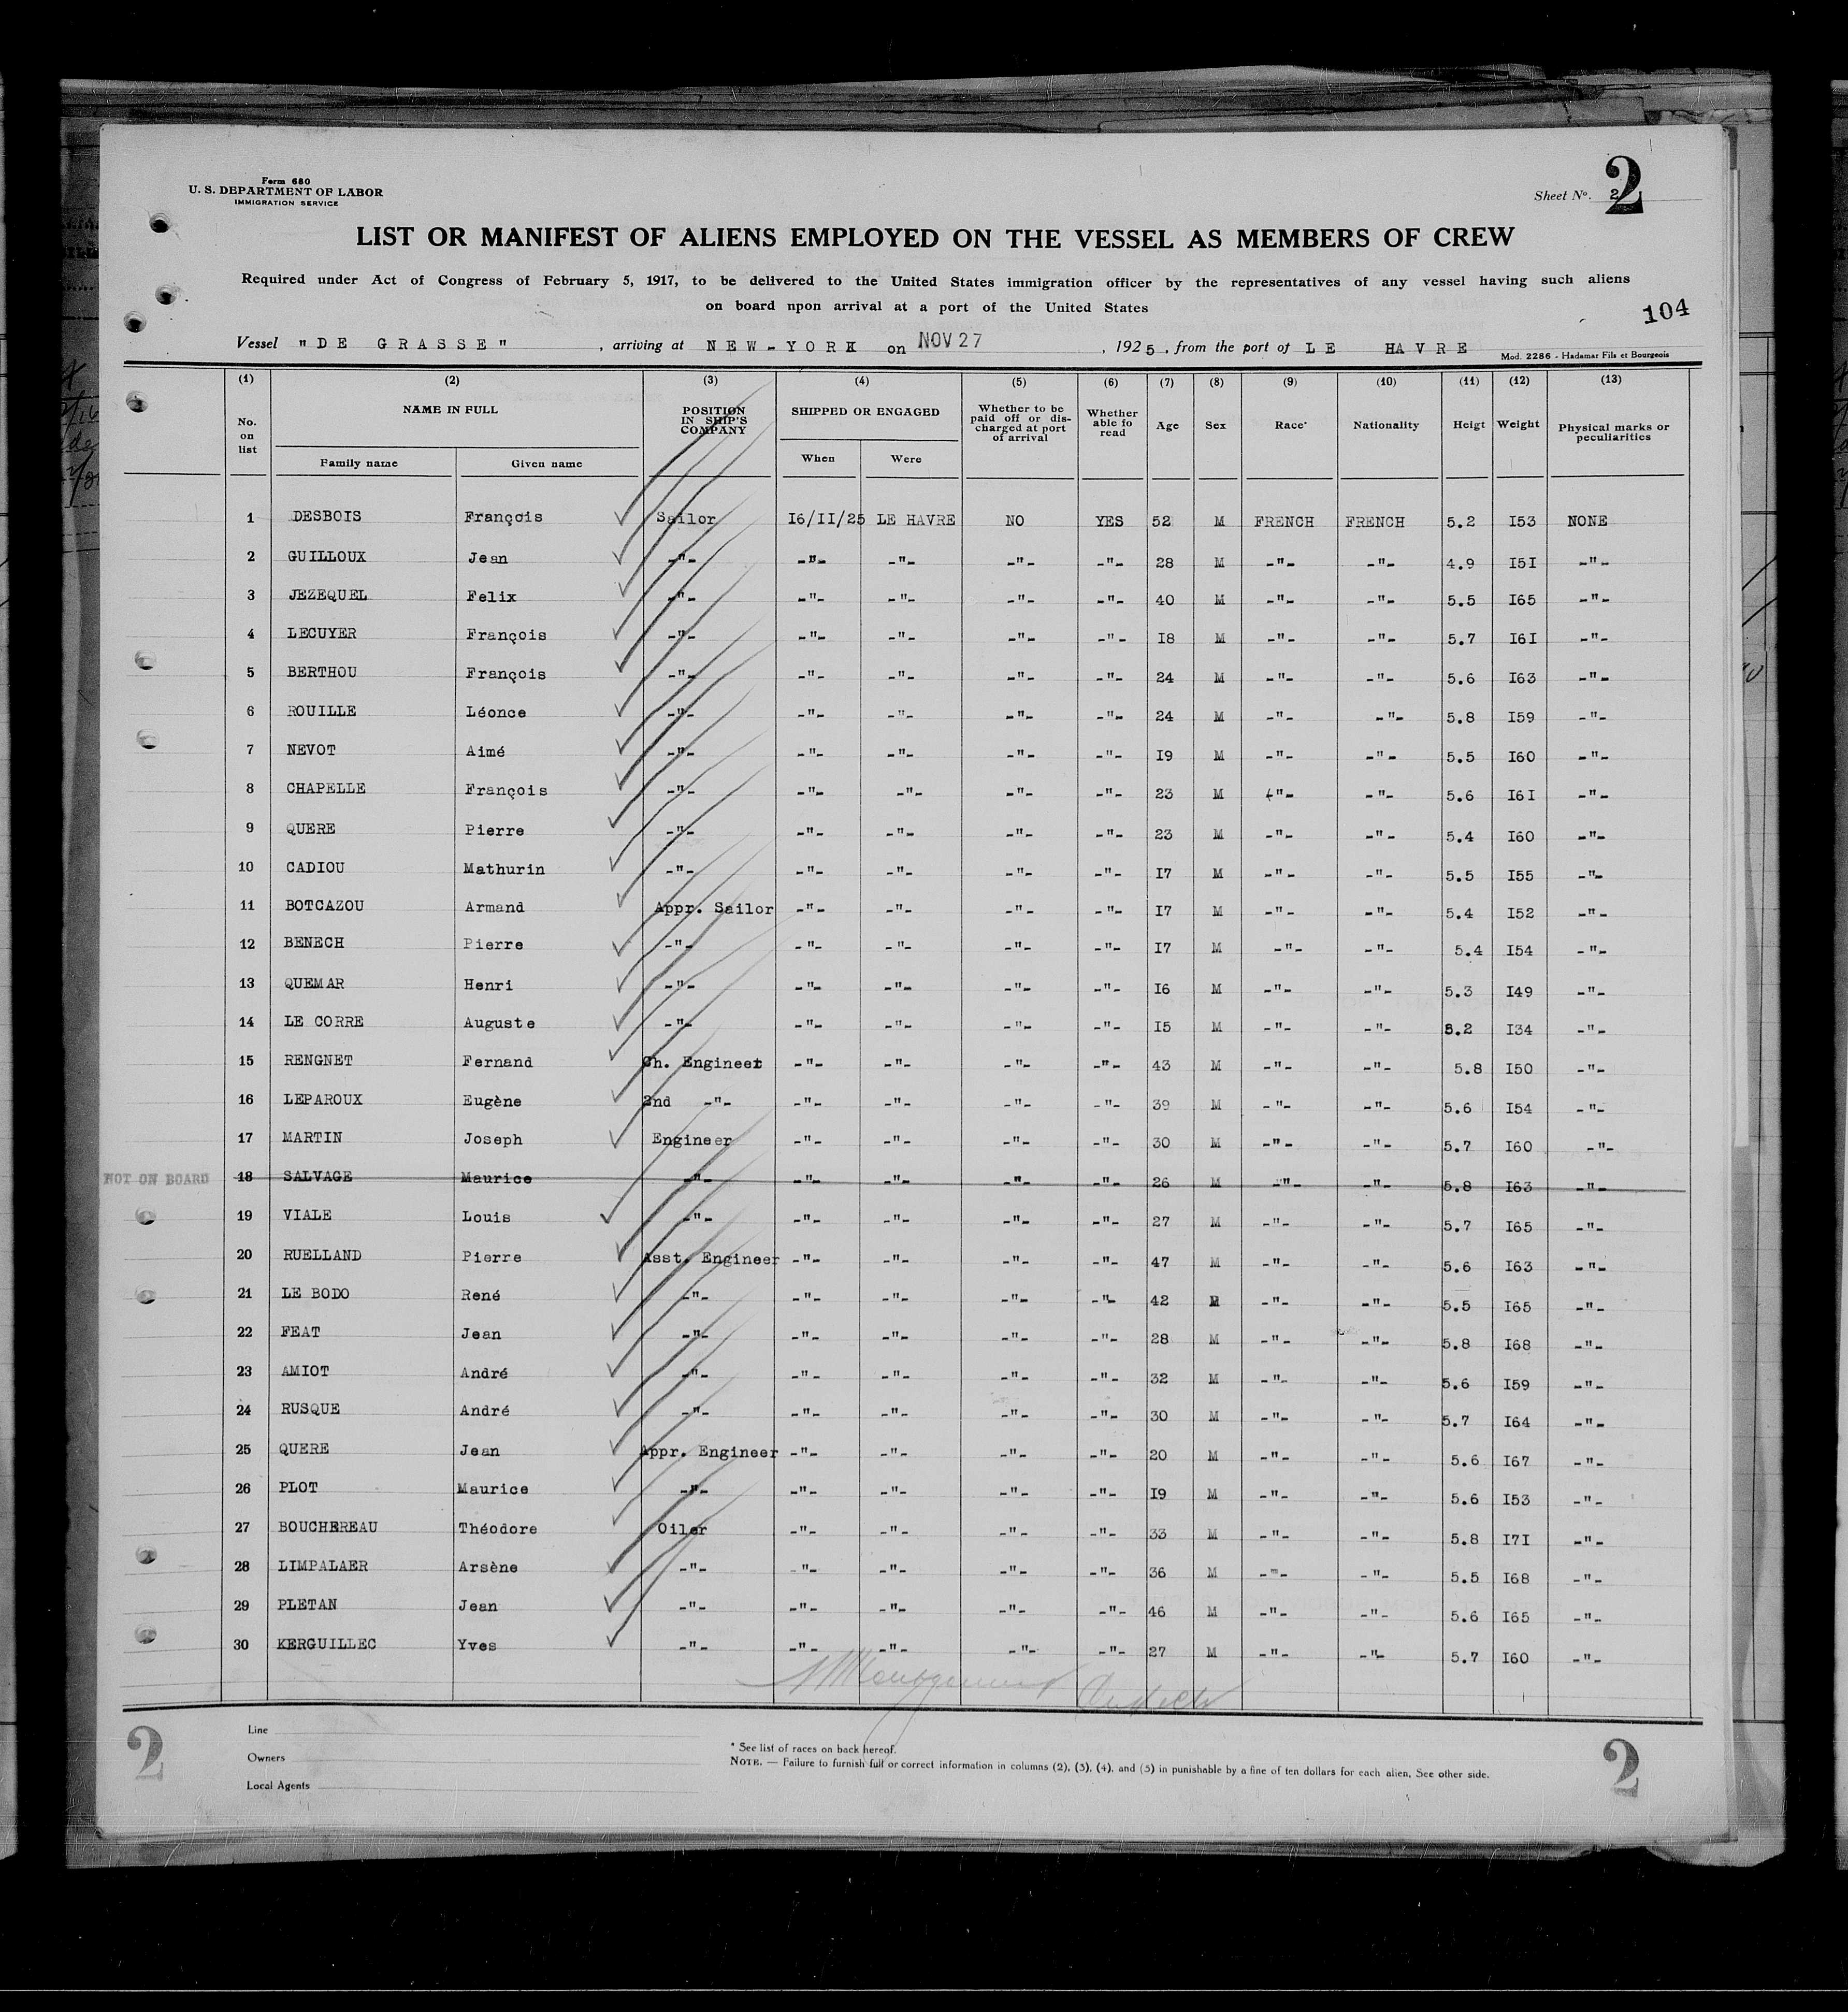 Form 680
U. S. DEPARTMENT OF LABOR
IMMIGRATION SERVICE
Sheet No. 2
2
LIST OR MANIFEST OF ALIENS EMPLOYED ON THE VESSEL AS MEMBERS OF CREW
Required under Act of Congress of February 5, 1917, to be delivered to the United States immigration officer by the representatives of any vessel having such aliens
on board npon arrival at a port of the United States
104
Vessel "DE GRASSE" , arriving at NEW-YORK on NOV 27 , 1925 , from the port of LE HAVRE
Mod. 2286 - Hadamar Fils et Bourgeois
(1) (2) (3) (4) (5) (6) (7) (8) (9) (10) (11) (12) (13)
No. on list NAME IN FULL Family name Given name POSITION IN SHIP'S COMPANY SHIPPED OR ENGAGED When Were Whether to be paid off or discharged at port of arrival Whether able fo read Age Sex Race* Nationality Heigt Weight Physical marks or peculiarities
1 DESBOIS François Sailor I6/II/25 LE HAVRE NO YES 52 M FRENCH FRENCH 5.2 I53 NONE
2 GUILLOUX Jean -"- -"- -"- -"- -"- 28 M -"- -"- 4.9 I5I -"-
3 JEZEQUEL Felix -"- -"- -"- -"- -"- 40 M -"- -"- 5.5 I65 -"-
4 LECUYER François -"- -"- -"- -"- -"- I8 M -"- -"- 5.7 I6I -"-
5 BERTHOU François -"- -"- -"- -"- -"- 24 M -"- -"- 5.6 I63 -"-
6 ROUILLE Léonce -"- -"- -"- -"- -"- 24 M -"- -"- 5.8 I59 -"-
7 NEVOT Aimé -"- -"- -"- -"- -"- I9 M -"- -"- 5.5 I60 -"-
8 CHAPELLE François -"- -"- -"- -"- -"- 23 M -"- -"- 5.6 I6I -"-
9 QUERE Pierre -"- -"- -"- -"- -"- 23 M -"- -"- 5.4 I60 -"-
10 CADIOU Mathurin -"- -"- -"- -"- -"- I7 M -"- -"- 5.5 I55 -"-
11 BOTCAZOU Armand Appr. Sailor -"- -"- -"- -"- I7 M -"- -"- 5.4 I52 -"-
12 BENECH Pierre -"- -"- -"- -"- -"- I7 M -"- -"- 5.4 I54 -"-
13 QUEMAR Henri -"- -"- -"- -"- -"- I6 M -"- -"- 5.3 I49 -"-
14 LE CORRE Auguste -"- -"- -"- -"- -"- I5 M -"- -"- 5.2 I34 -"-
15 RENGNET Fernand Ch. Engineer -"- -"- -"- -"- 43 M -"- -"- 5.8 I50 -"-
16 LEPAROUX Eugène 2nd -"- -"- -"- -"- -"- 39 M -"- -"- 5.6 I54 -"-
17 MARTIN Joseph Engineer -"- -"- -"- -"- 30 M -"- -"- 5.7 I60 -"-
NOT ON BOARD 18 SALVAGE Maurice -"- -"- -"- -"- -"- 26 M -"- -"- 5.8 I63 -"-
19 VIALE Louis -"- -"- -"- -"- -"- 27 M -"- -"- 5.7 I65 -"-
20 RUELLAND Pierre Asst. Engineer -"- -"- -"- -"- 47 M -"- -"- 5.6 I63 -"-
21 LE BODO René -"- -"- -"- -"- -"- 42 M -"- -"- 5.5 I65 -"-
22 FEAT Jean -"- -"- -"- -"- -"- 28 M -"- -"- 5.8 I68 -"-
23 AMIOT André -"- -"- -"- -"- -"- 32 M -"- -"- 5.6 I59 -"-
24 RUSQUE André -"- -"- -"- -"- -"- 30 M -"- -"- 5.7 I64 -"-
25 QUERE Jean Appr. Engineer -"- -"- -"- -"- 20 M -"- -"- 5.6 I67 -"-
26 PLOT Maurice -"- -"- -"- -"- -"- I9 M -"- -"- 5.6 I53 -"-
27 BOUCHEREAU Théodore Oiler -"- -"- -"- -"- 33 M -"- -"- 5.8 I7I -"-
28 LIMPALAER Arsène -"- -"- -"- -"- -"- 36 M -"- -"- 5.5 I68 -"-
29 PLETAN Jean -"- -"- -"- -"- -"- 46 M -"- -"- 5.6 I65 -"-
30 KERGUILLEC Yves -"- -"- -"- -"- -"- 27 M -"- -"- 5.7 I60 -"-
Line
Owners
Local Agents
* See list of races on back hereof.
NOTE. — Failure to furnish full or correct information in columns (2), (3), (4), and (5) in punishable by a fine of ten dollars for each alien, See other side.
2
2